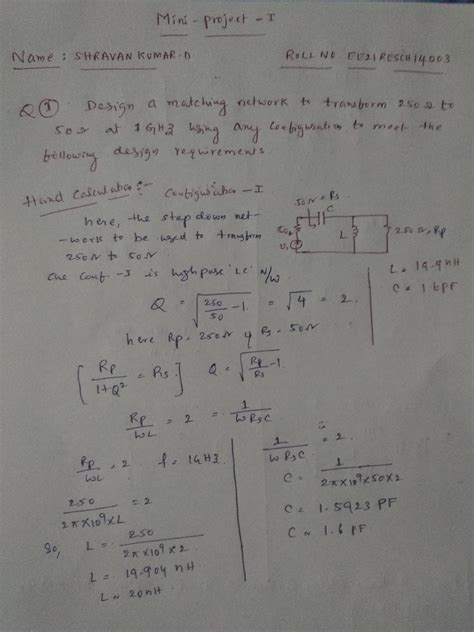 Mini-project-I
Name: SHRAVAN KUMAR.D ROLL NO EE21RESCH14003
Q① Design a matching network to transform 250Ω to
50Ω at 1GHz using any Configuration to meet the
following design requirements
Hand Calculation:- Configuration-I
here, the step down net-
-work to be used to transform
250Ω to 50Ω.
the Conf.-I is highpass 'LC' N/W
50Ω = Rs
C
50Ω
L
250Ω, Rp
L = 19.9nH
C = 1.6pF
Q = √(250/50 - 1) = √4 = 2.
here Rp = 250Ω & Rs = 50Ω
[Rp/(1+Q²) = Rs] Q = √(Rp/Rs - 1)
Rp/WL = 2 = 1/(WRsC)
Rp/WL = 2 f = 1GHz
250/(2π×10⁹×L) = 2
So, L = 250/(2π×10⁹×2)
L = 19.904 nH
L ≈ 20nH
1/(WRsC) = 2.
C = 1/(2π×10⁹×50×2)
C = 1.5923 PF
C ≈ 1.6 PF